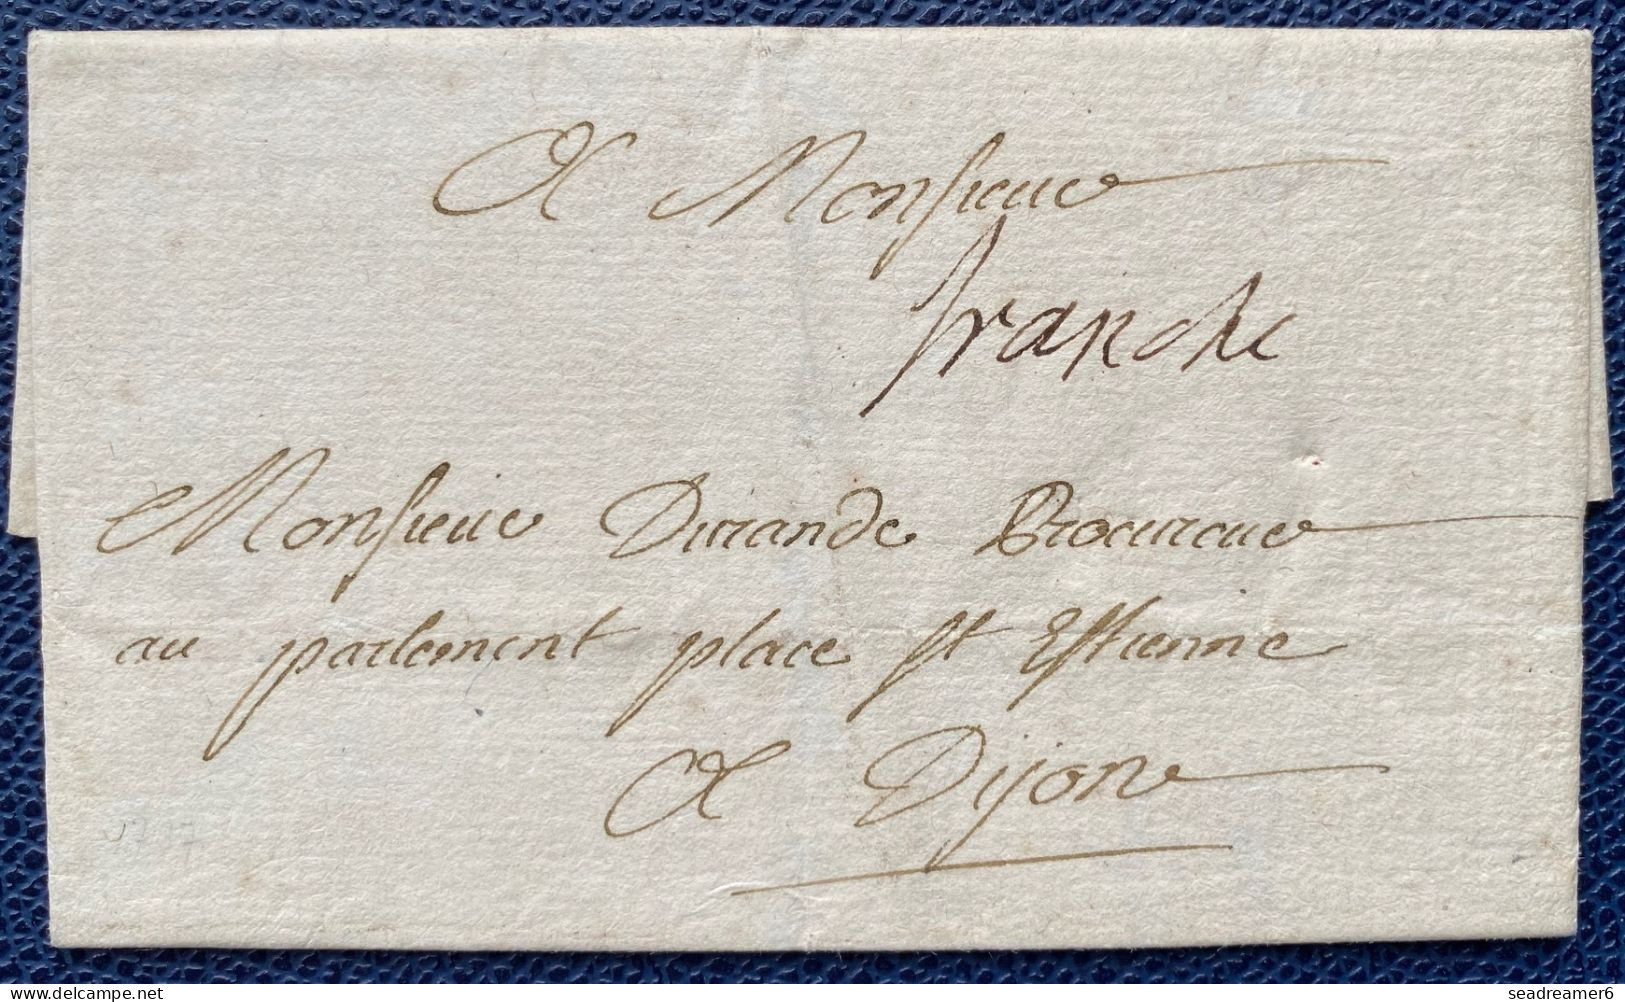 A Monsieur
franche
Monsieur Durande Procureur
au parlement place st Estienne
A Dijon
© delcampe.net
seadreamer6